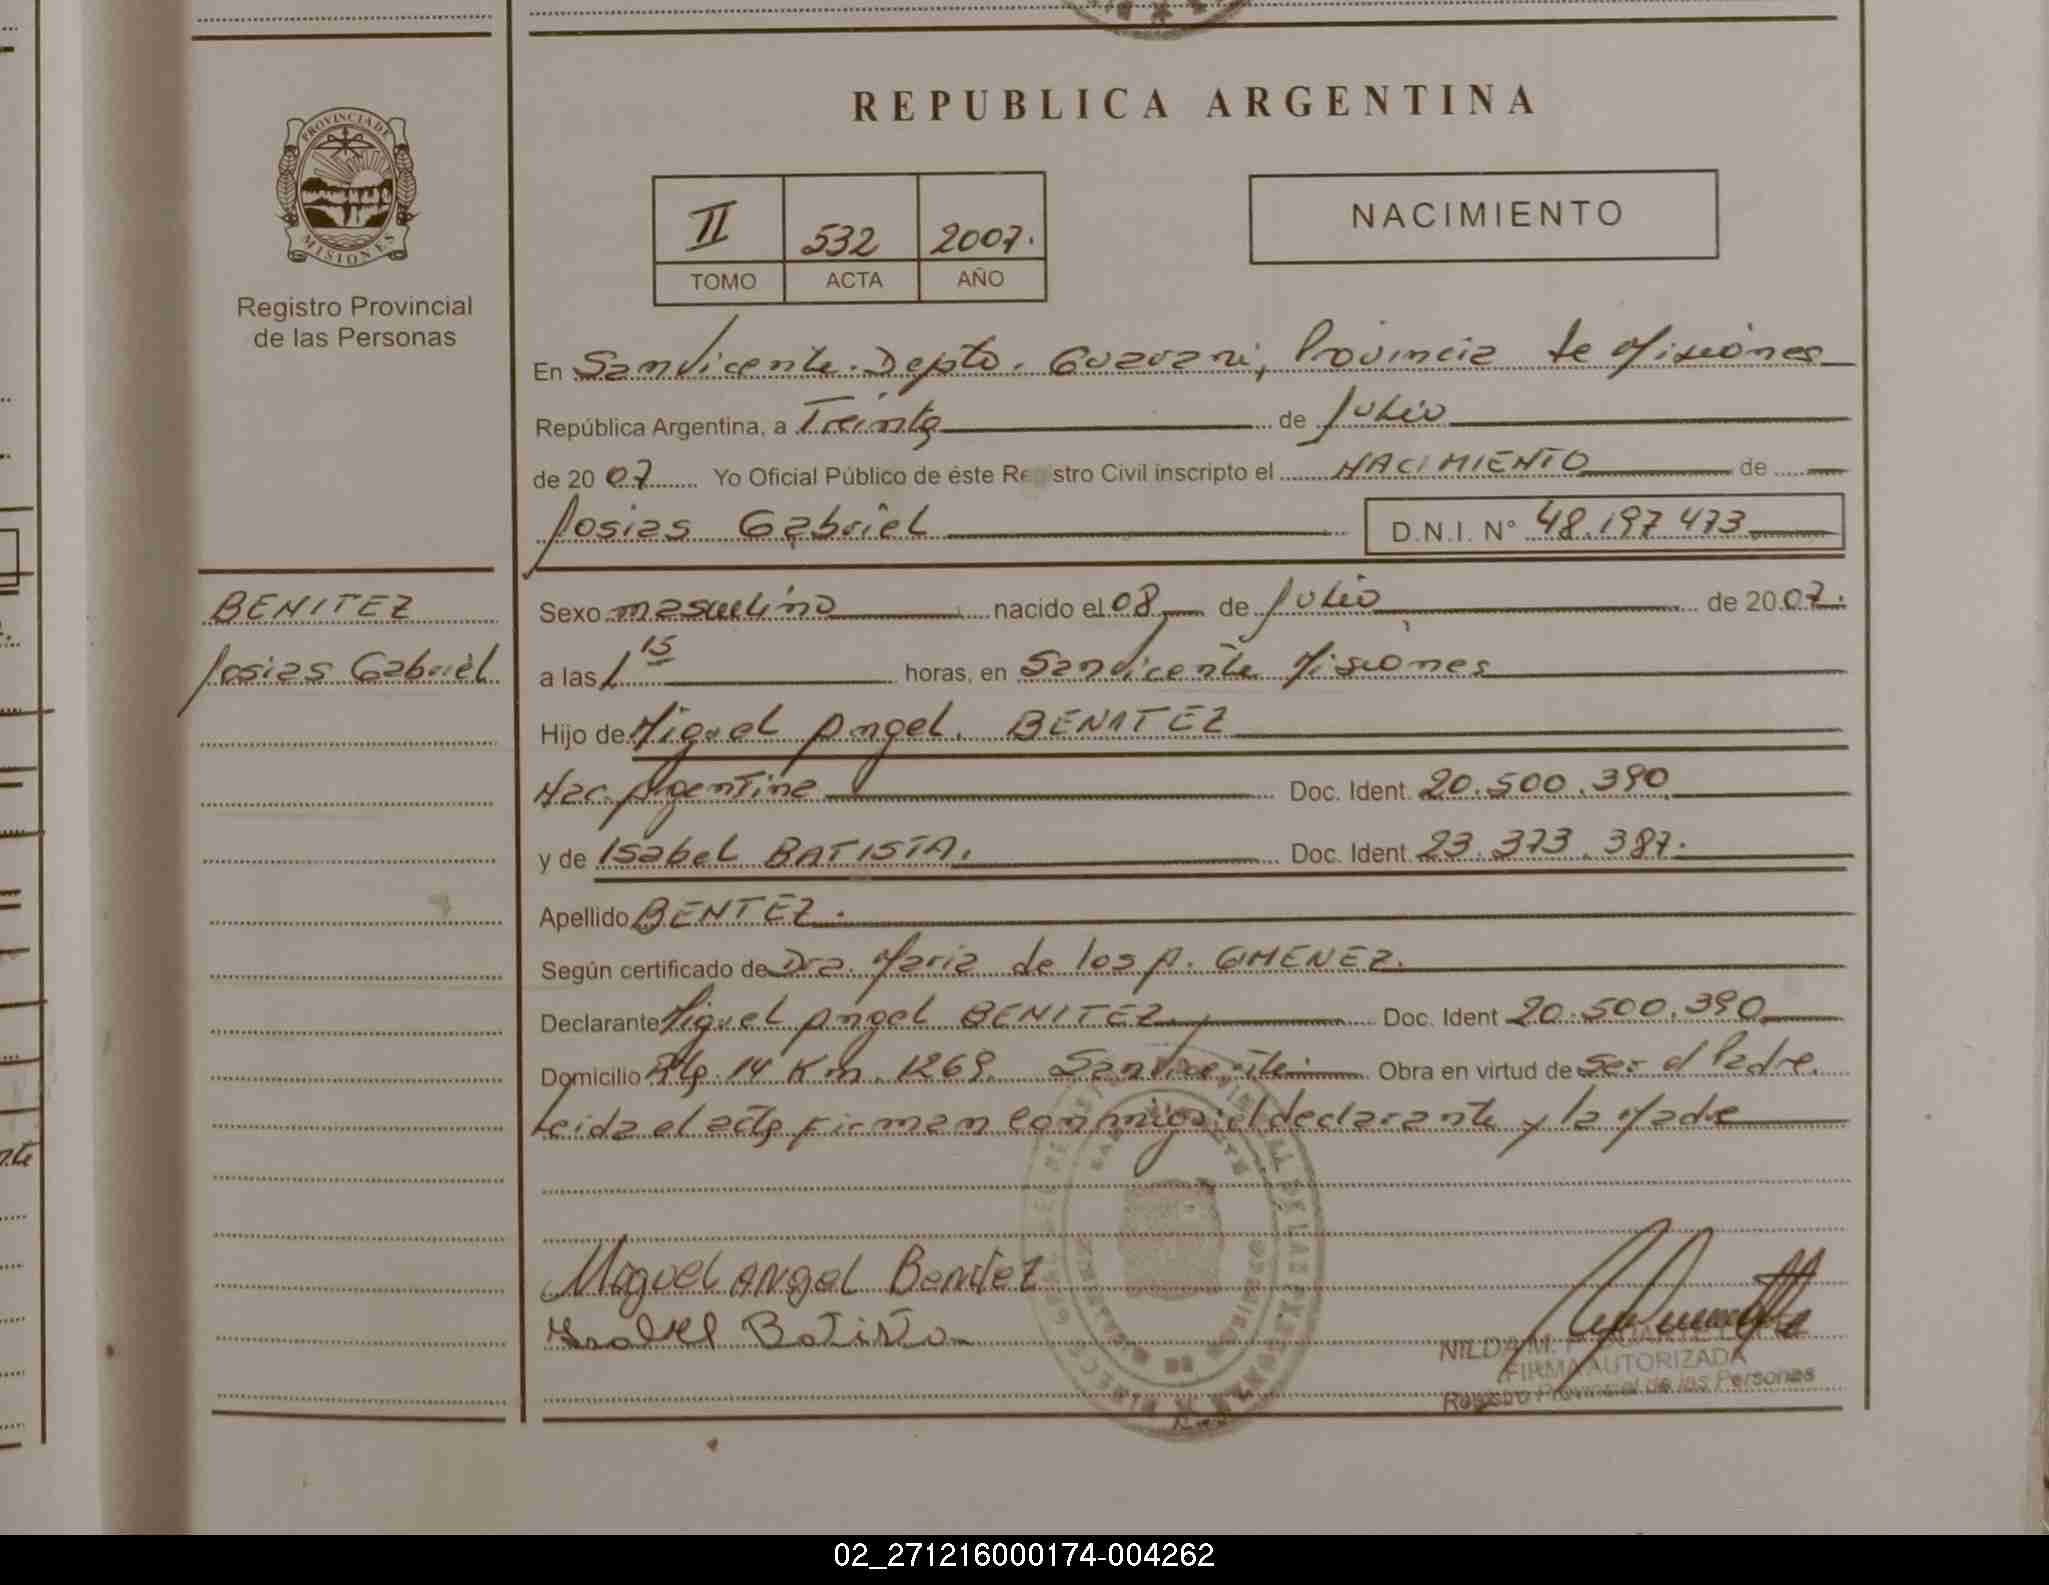 REPUBLICA ARGENTINA
PROVINCIA DE
MISIONES
Registro Provincial
de las Personas
II 532 2007.
TOMO ACTA AÑO
NACIMIENTO
En San Vicente. Depto. Guarani, Provincia de Misiones
República Argentina, a Treinta de Julio
de 20 07 Yo Oficial Público de éste Registro Civil inscripto el NACIMIENTO de
Josias Gabriel D.N.I. N° 48.197.473
BENITEZ
Josias Gabriel
Sexo masculino nacido el 08 de Julio de 20 07.
a las 1 15 horas, en San Vicente Misiones
Hijo de Miguel Angel. BENITEZ
Nac. Argentina Doc. Ident. 20.500.390
y de Isabel BATISTA. Doc. Ident. 23.373.387.
Apellido BENTEZ.
Según certificado de Dra. Maria de los A. GIMENEZ.
Declarante Miguel Angel BENITEZ Doc. Ident 20.500.390
Domicilio Rta. 14 Km. 1269. San Vicente Obra en virtud de ser el Padre.
Leida el acta firman conmigo el declarante y la Madre
Miguel ANgel Benitez
Isabel Batista
NILDA M.
FIRMA AUTORIZADA
Registro Provincial de las Personas
02_271216000174-004262